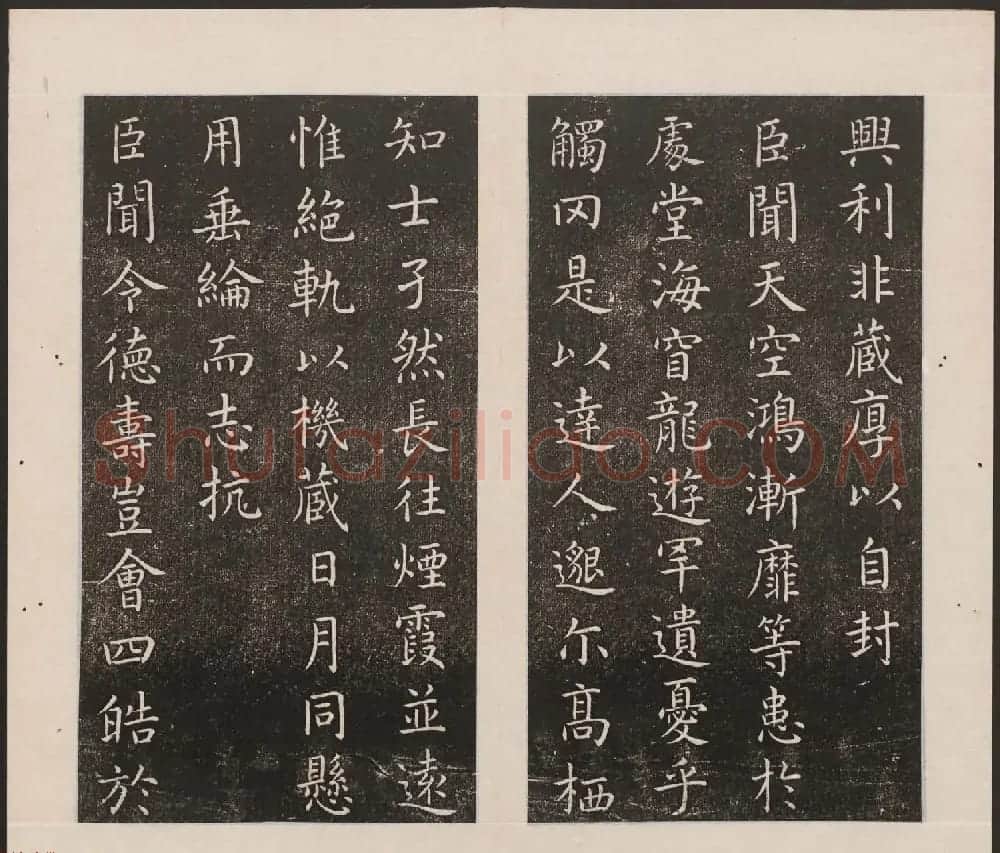 興利非蔵厚以自封
臣聞天空鴻漸靡等患於
處堂海窅龍遊罕遺憂乎
觸罔是以達人邈尓高栖
知士孑然長往煙霞並遠
惟絕軌以機蔵日月同懸
用垂綸而志抗
臣聞令德壽豈會四皓於
Shufazilido.com